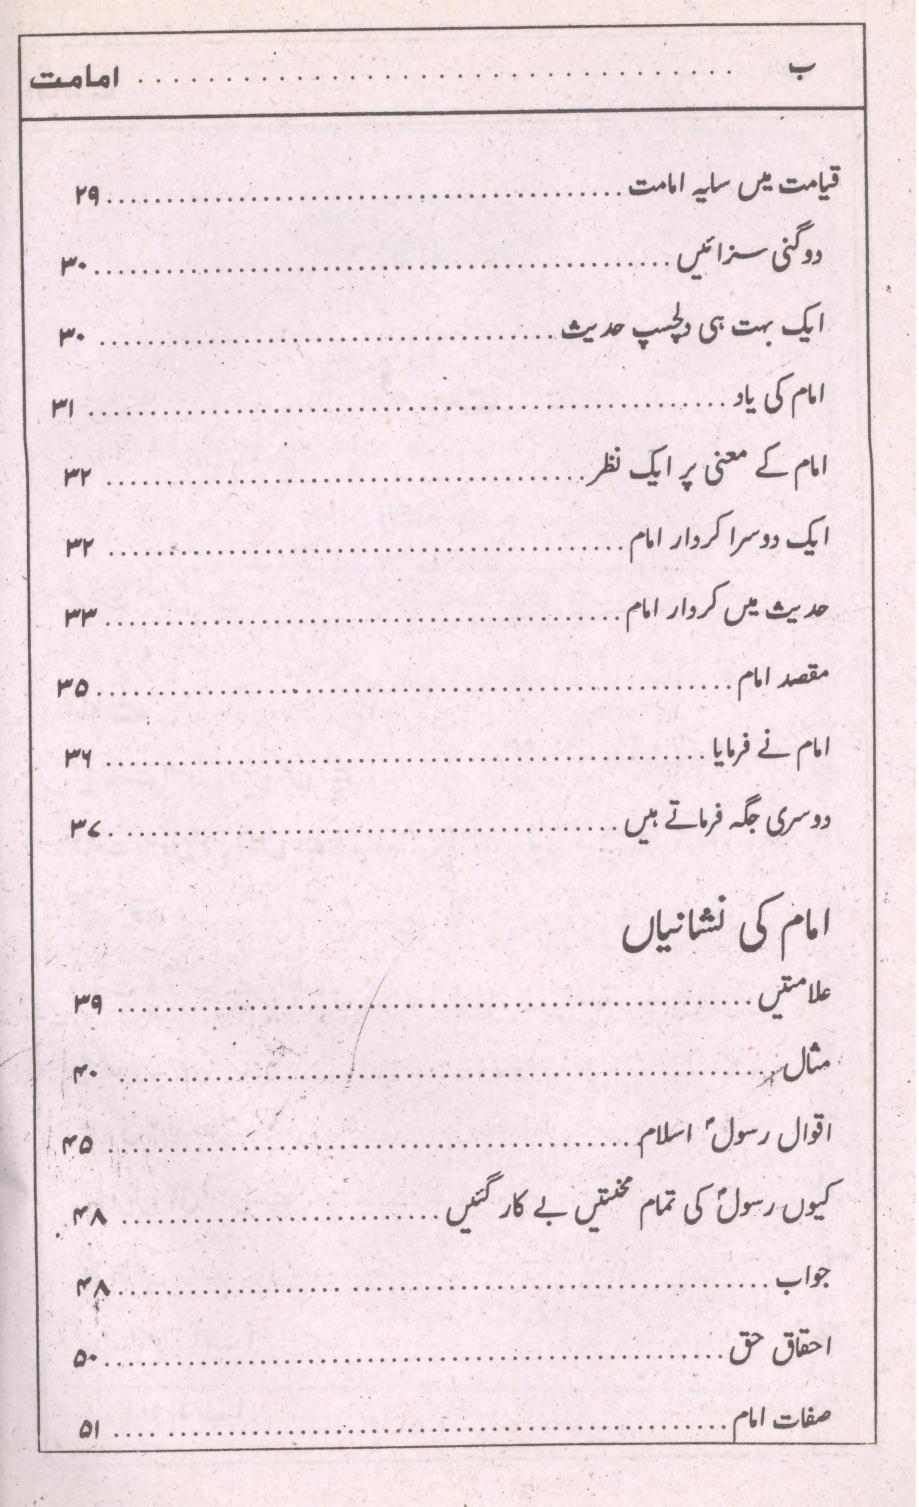 ب ................................. امامت
قیامت میں سایہ امامت ................................. ۲۹
دوگنی سزائیں ................................. ۳۰
ایک بہت ہی دلچسپ حدیث ................................. ۳۰
امام کی یاد ................................. ۳۱
امام کے معنی پر ایک نظر ................................. ۳۲
ایک دوسرا کردار امام ................................. ۳۲
حدیث میں کردار امام ................................. ۳۳
مقصد امام ................................. ۳۵
امام نے فرمایا ................................. ۳۶
دوسری جگہ فرماتے ہیں ................................. ۳۷
امام کی نشانیاں
علامتیں ................................. ۳۹
مثال ................................. ۴۰
اقوال رسولؐ اسلام ................................. ۴۵
کیوں رسولؐ کی تمام محنتیں بے کار گئیں ................................. ۴۸
جواب ................................. ۴۸
احقاق حق ................................. ۵۰
صفات امام ................................. ۵۱